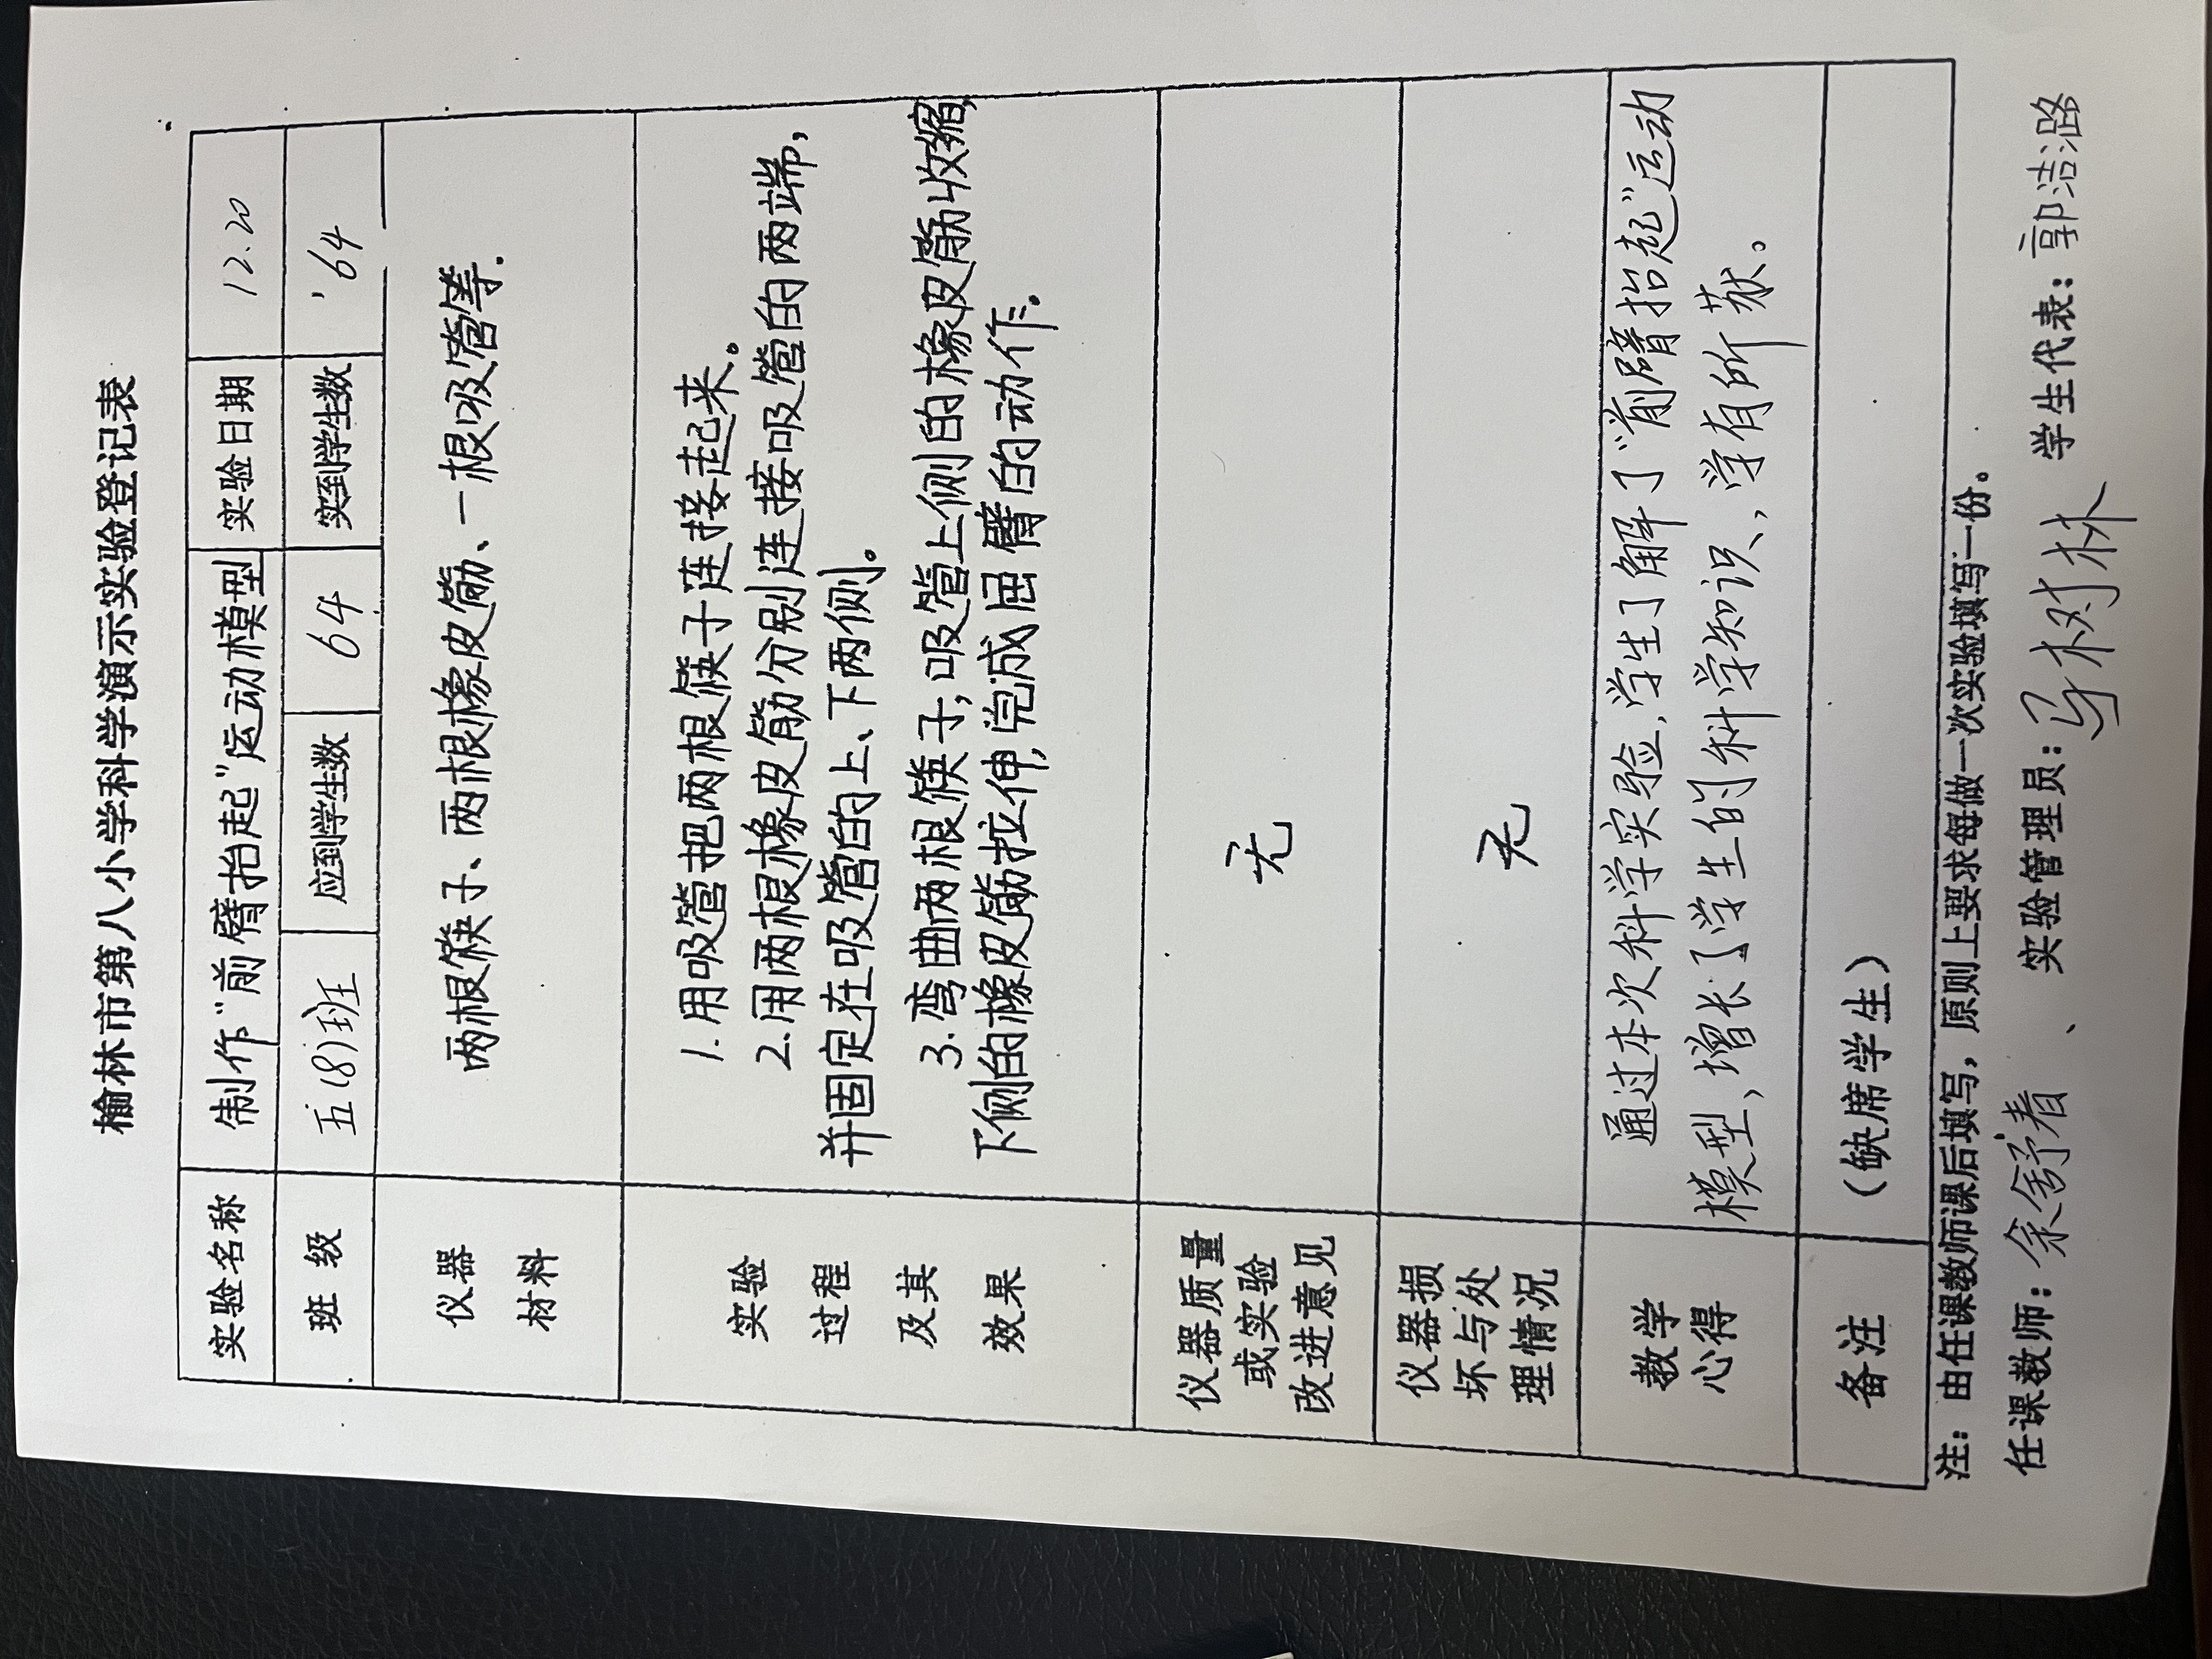 榆林市第八小学科学演示实验登记表
实验名称 制作“前臂抬起”运动模型 实验日期 12.20
班 级 五(8)班 应到学生数 64 实到学生数 64
仪器
材料
两根筷子、两根橡皮筋、一根吸管等.
实验
过程
及其
效果
1.用吸管把两根筷子连接起来。
2.用两根橡皮筋分别连接吸管的两端,
并固定在吸管的上、下两侧。
3.弯曲两根筷子,吸管上侧的橡皮筋收缩,
下侧的橡皮筋拉伸,完成屈臂的动作.
仪器质量
或实验
改进意见
无
仪器损
坏与处
理情况
无
教学
心得
通过本次科学实验,学生了解了“前臂抬起”运动
模型,增长了学生的科学知识,学有所获。
备注 (缺席学生)
注：由任课教师课后填写，原则上要求每做一次实验填写一份。
任课教师：余舒着 、 实验管理员：马树林 学生代表：郭洁潞